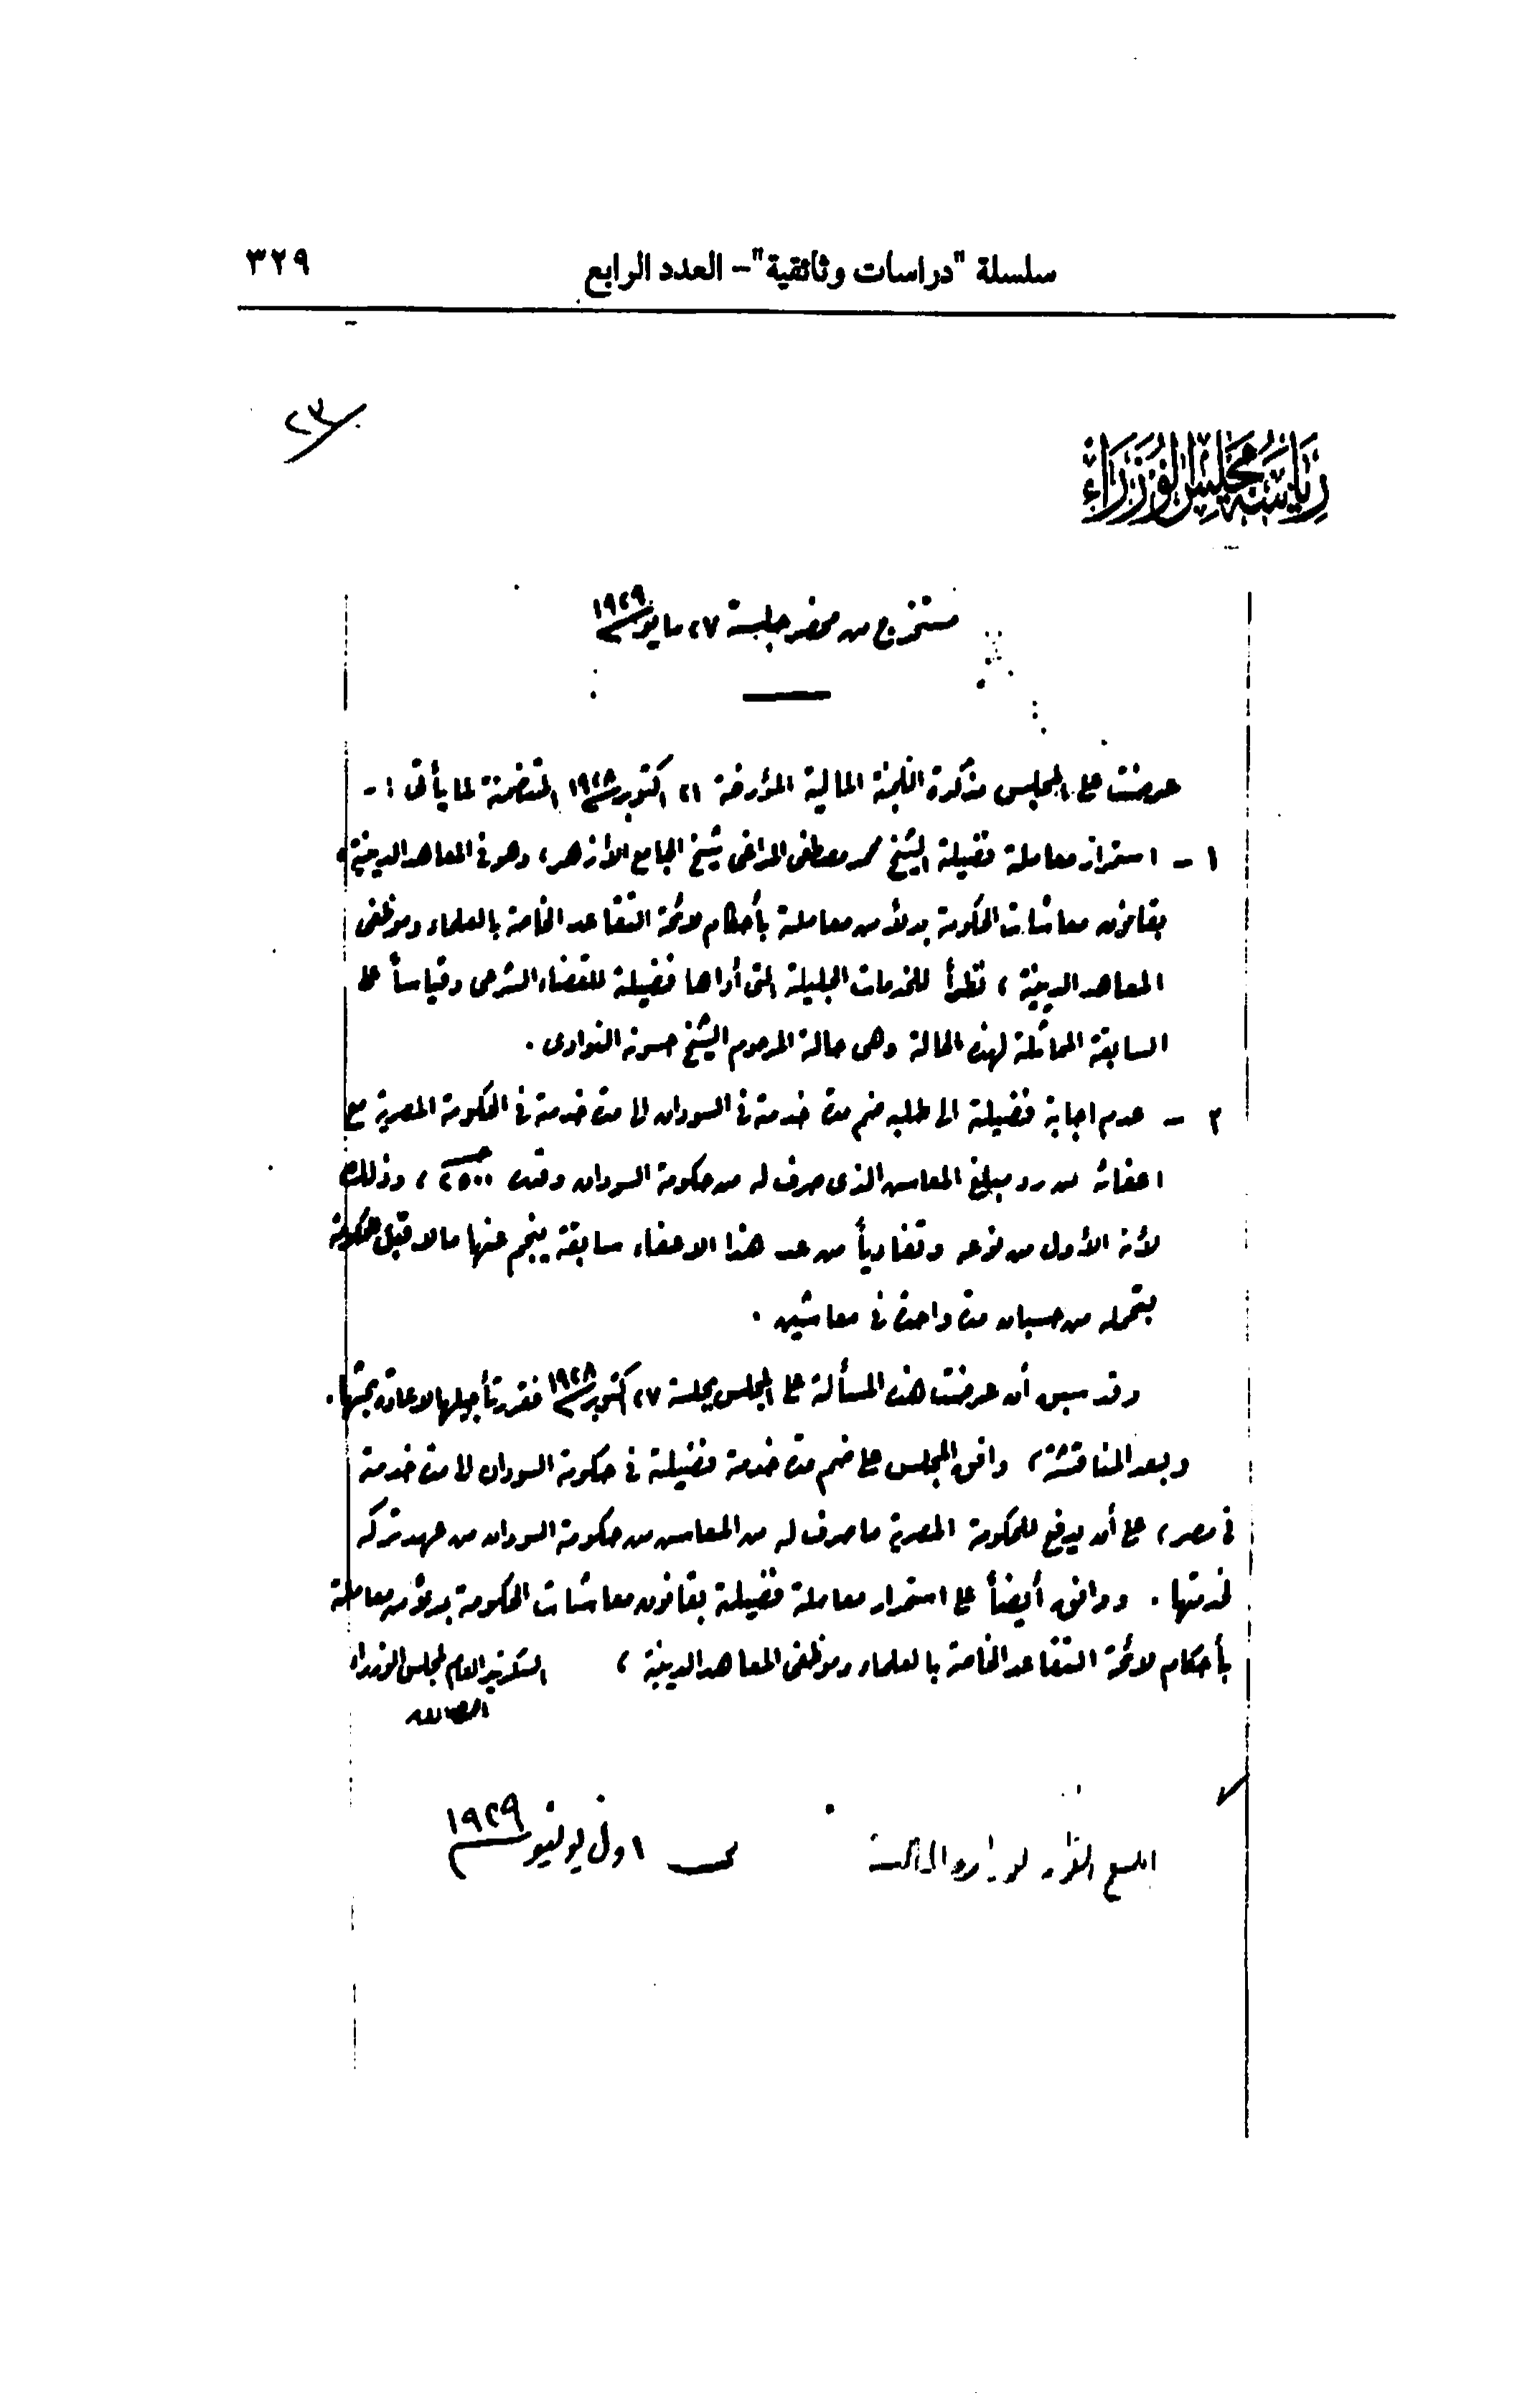 سلسلة "دراسات وثائقية"- العدد الرابع ٣٢٩
٢٣
رياسة مجلس الوزراء
مستخرج من محضر جلسة ٢٧ مايو ١٩٢٩
عرضت على المجلس مذكرة اللجنة المالية المؤرخة ٢١ اكتوبر ١٩٢٨ المتضمنة لما يأتى :-
١ - استمرار معاملة فضيلة الشيخ محمد مصطفى المراغى شيخ الجامع الأزهر، وهو فى المعاهد الدينية،
بقانون معاشات الحكومة بدلا من معاملته بأحكام لائحة التقاعد الخاصة بالعلماء وموظفى
المعاهد الدينية، نظراً للخدمات الجليلة التى أداها فضيلته للقضاء الشرعى وقياساً على
السابقة المماثلة لهذه الحالة وهى حالة المرحوم الشيخ حسونه النواوى .
٢ - عدم اجابة فضيلته الى طلبه ضم مدة خدمته فى السودان الى مدة خدمته فى الحكومة المصرية مع
اعفائه من رد مبلغ المعاش الذى صرف له من حكومة السودان وقدره ٢٥٠٠، وذلك
لأنه الأول من نوعه وتفادياً من عد هذا الاعفاء سابقة ينجم عنها ما لا قبل للحكومة
بتحمله من حسبان مدة واحدة فى معاشين .
وقد سبق أن عرضت هذه المسألة على المجلس بجلسة ٢٧ اكتوبر ١٩٢٨ فقرر تأجيلها لاعادة بحثها .
وبعد المناقشة، وافق المجلس على ضم مدة خدمة فضيلته فى حكومة السودان الى مدة خدمته
فى مصر، على أن يدفع للحكومة المصرية ما صرف له من المعاش من حكومة السودان من عهد تركه
لخدمتها . ووافق أيضاً على استمرار معاملة فضيلته بقانون معاشات الحكومة بدلا من معاملته
بأحكام لائحة التقاعد الخاصة بالعلماء وموظفى المعاهد الدينية، السكرتير العام لمجلس الوزراء
ابلغ القرار لوزارة المالية فى اول يونيو ١٩٢٩